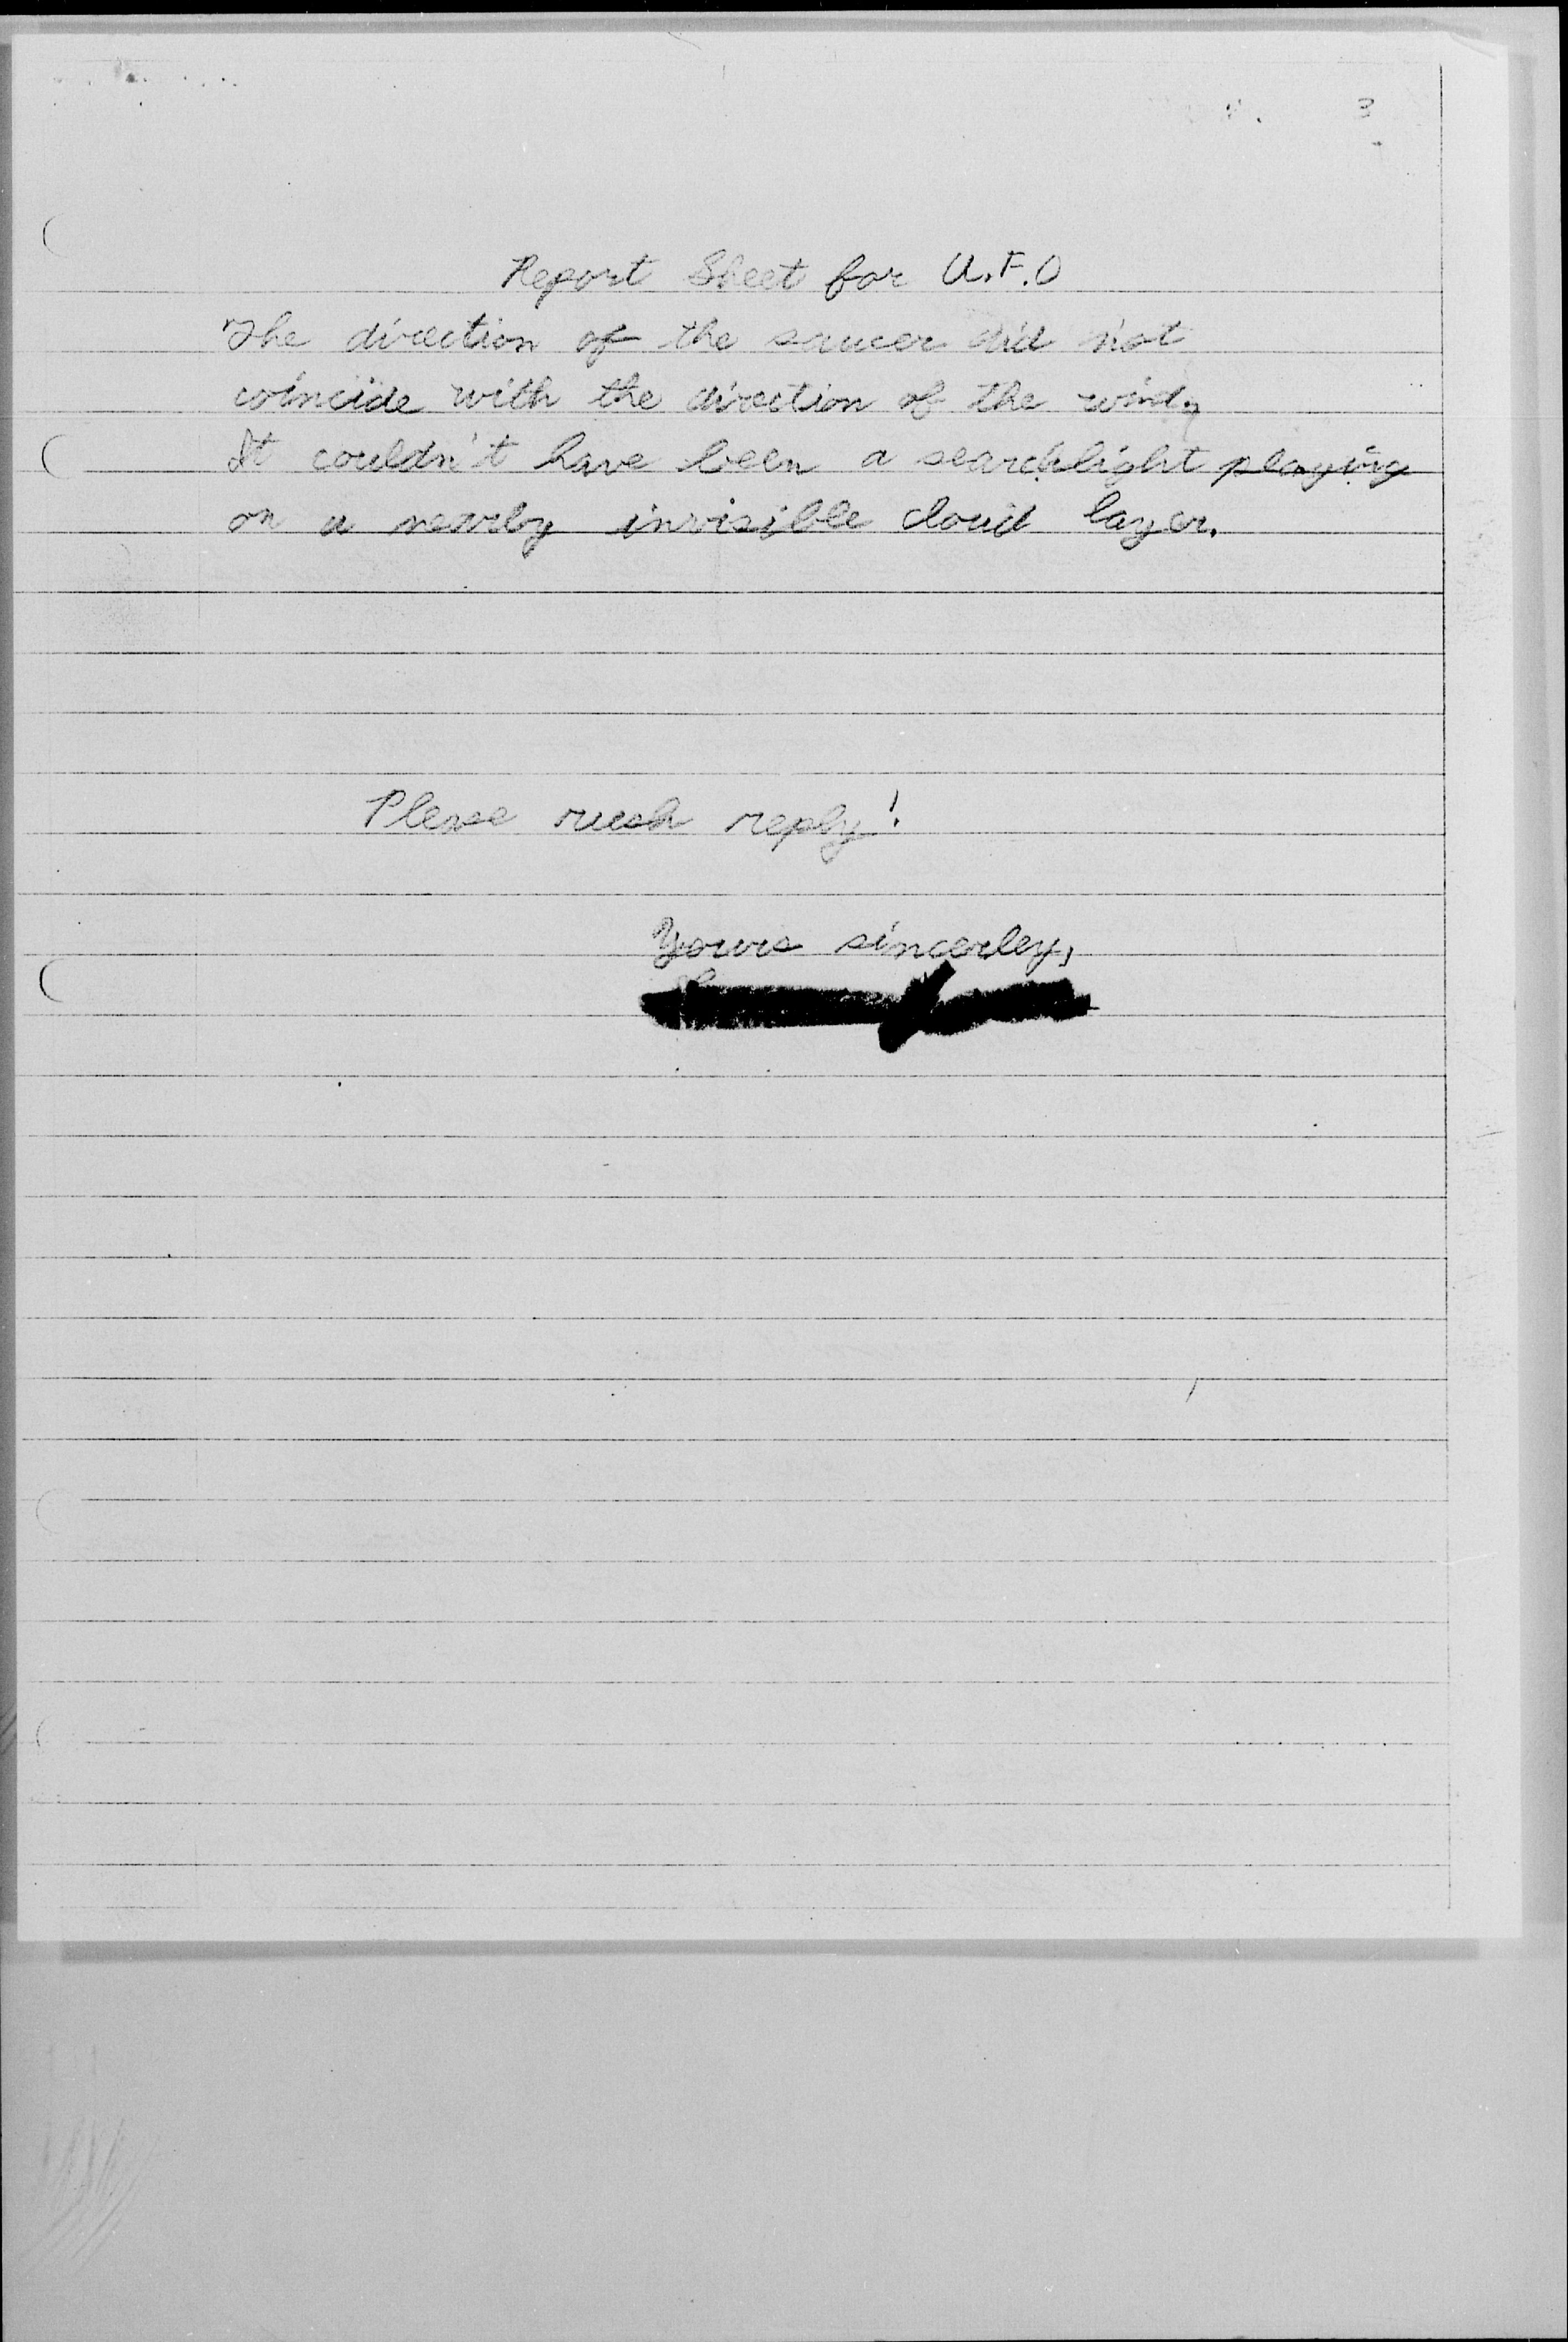 3
Report Sheet for U.F.O
The direction of the saucer did not
coincide with the direction of the wind,
It couldn't have been a searchlight playing
on a nearby invisible cloud layer.
Please rush reply!
Yours sincerley,